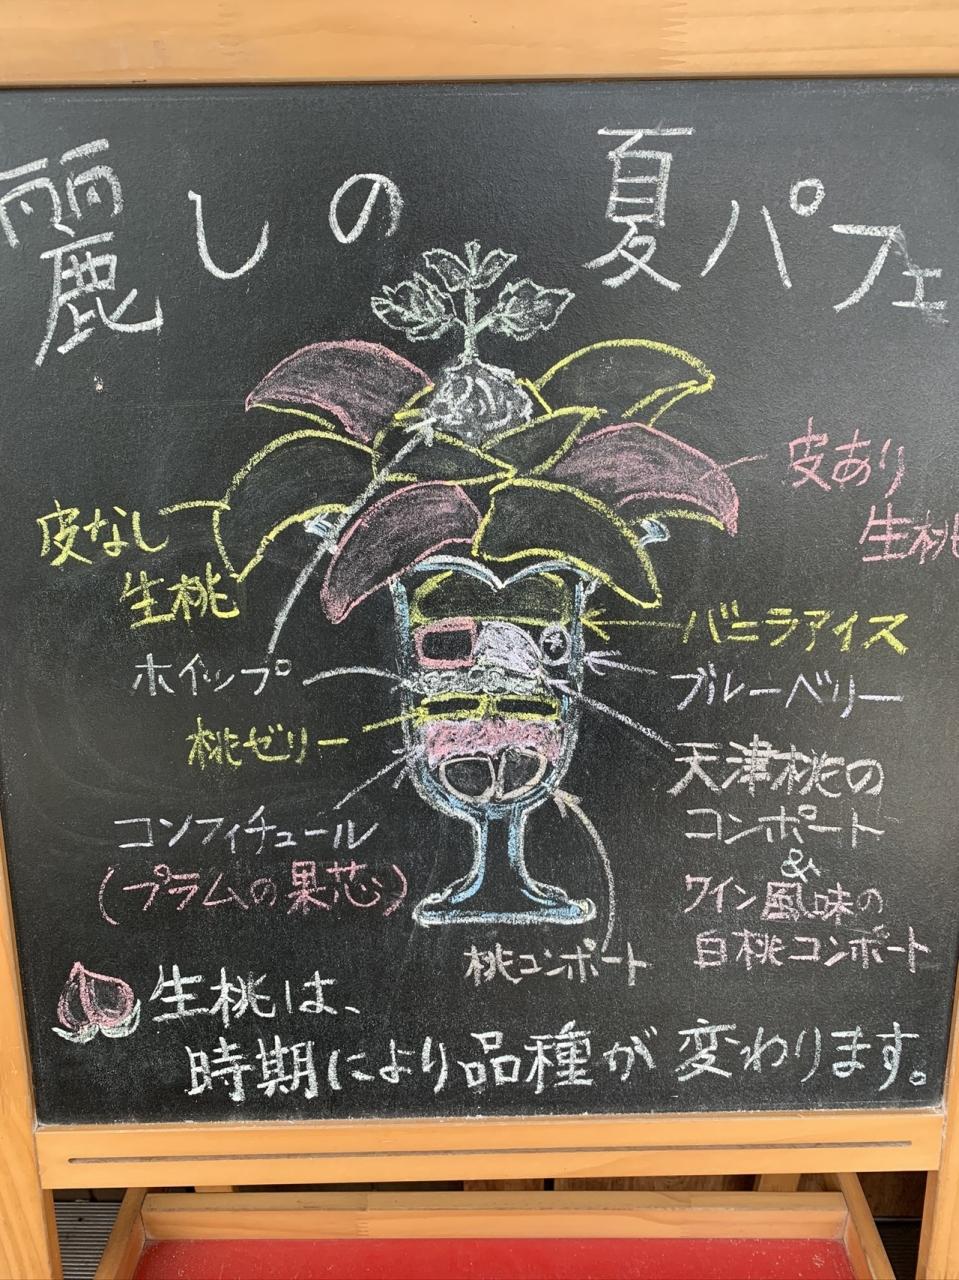 麗しの 夏パフェ
皮あり
生桃
皮なし
生桃
バニラアイス
ホイップ
ブルーベリー
桃ゼリー
天津桃の
コンポート
&
ワイン風味の
白桃コンポート
コンフィチュール
(プラムの果芯)
桃コンポート
生桃は、
時期により品種が変わります。